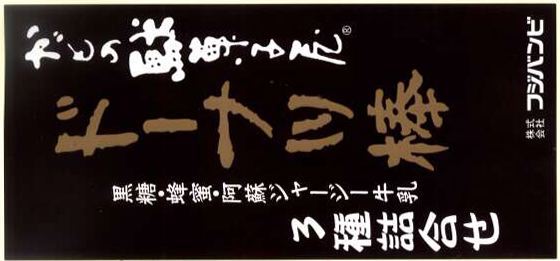 の駄菓子屋®
ドーナツ棒
黒糖・蜂蜜・阿蘇ジャージー牛乳
3種詰合せ
株式会社 フジバンビ